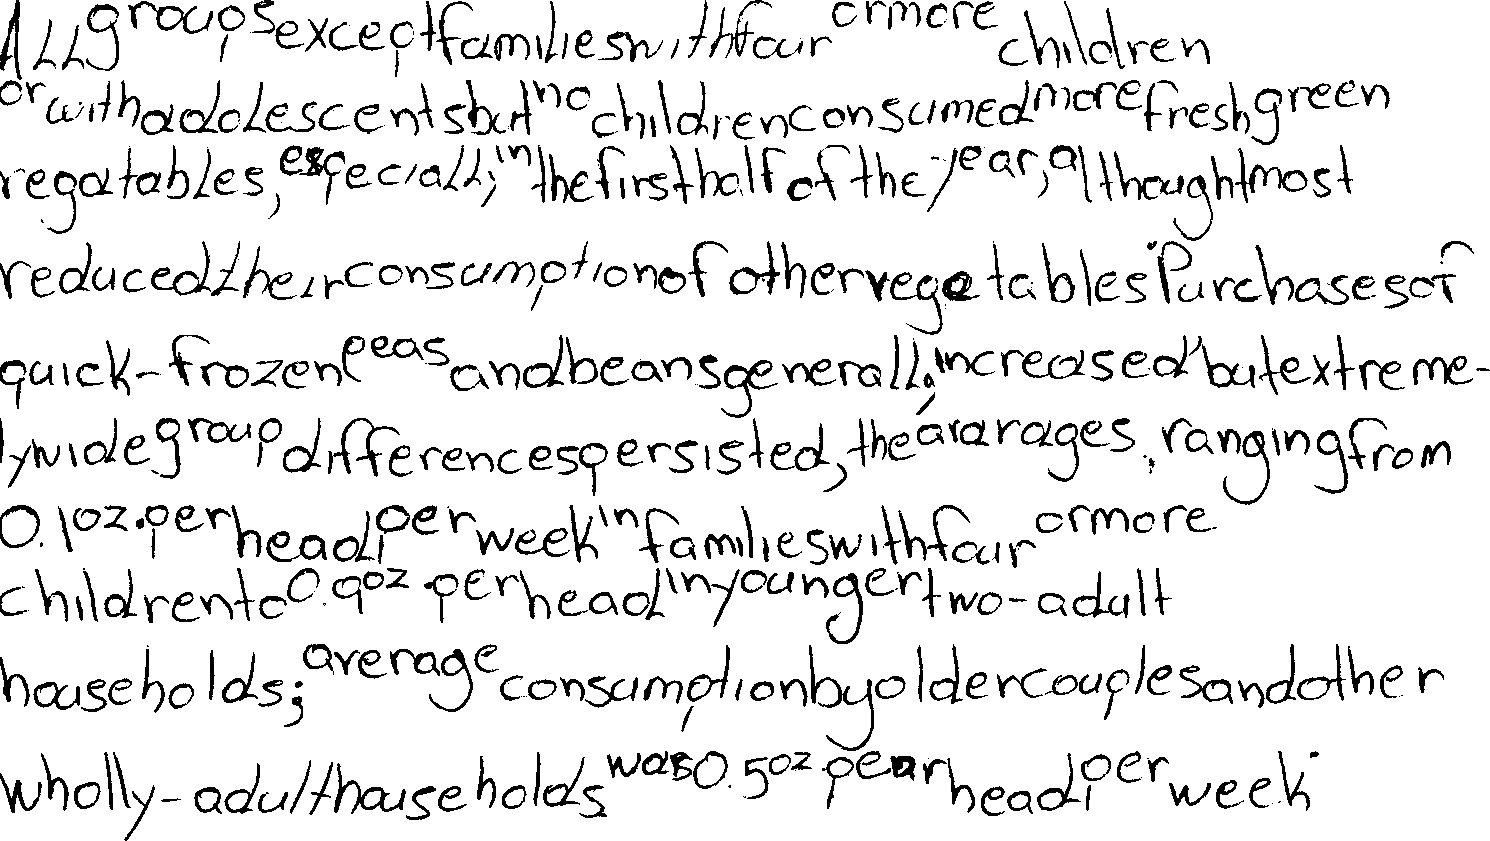 ALL groups except families with four or more children
or with adolescents but no children consumed more fresh green
vegatables, especially in the first half of the year, although most
reduced their consumption of other vegetables. Purchases of
quick-frozen peas and beans generally increased but extreme-
ly wide group differences persisted, the avarages, ranging from
0.1 oz. per head per week in families with four or more
children to 0.9 oz. per head in younger two-adult
households; average consumption by older couples and other
wholly-adult households was 0.5 oz. per head per week.